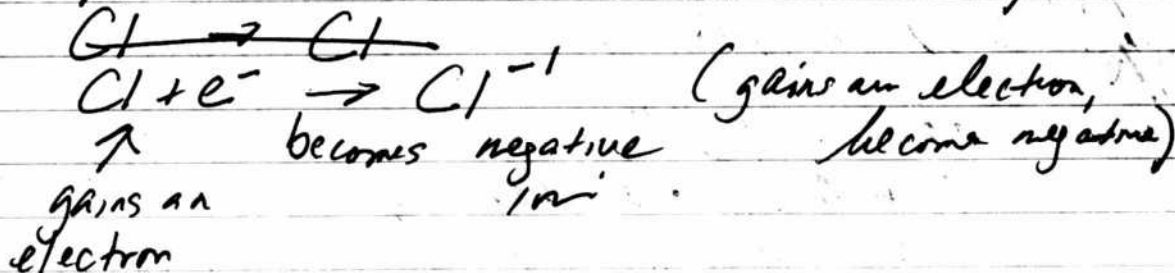 Cl → Cl
Cl + e⁻ → Cl⁻¹ (gains an election,
↑ becomes negative become negative)
gains an ion
electron